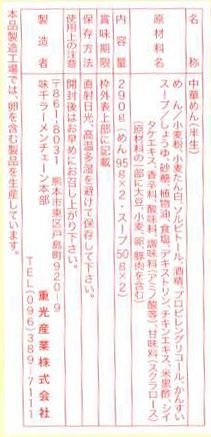 名称 中華めん(半生)
原材料名 めん(小麦粉、小麦たん白、ソルビトール、酒精、プロピレングリコール、かんすい)
スープ(しょうゆ、砂糖、植物油、食塩、デキストリン、チキンエキス、米黒酢、シイ
タケエキス、香辛料、酸味料、調味料(アミノ酸等)、甘味料(スクラロース)
(原材料の一部に大豆、小麦、卵、豚肉を含む)
内容量 290g(めん95g×2・スープ50g×2)
賞味期限 枠外表上部に記載
保存方法 直射日光、高温多湿を避けて保存して下さい。
使用上の注意 開封後はお早めにお召し上がり下さい。
製造者 〒861-8031 熊本市東区戸島町920-9
味千ラーメンチェーン本部
重光産業株式会社
TEL(096)389-7111
本品製造工場では、卵を含む製品を生産しています。